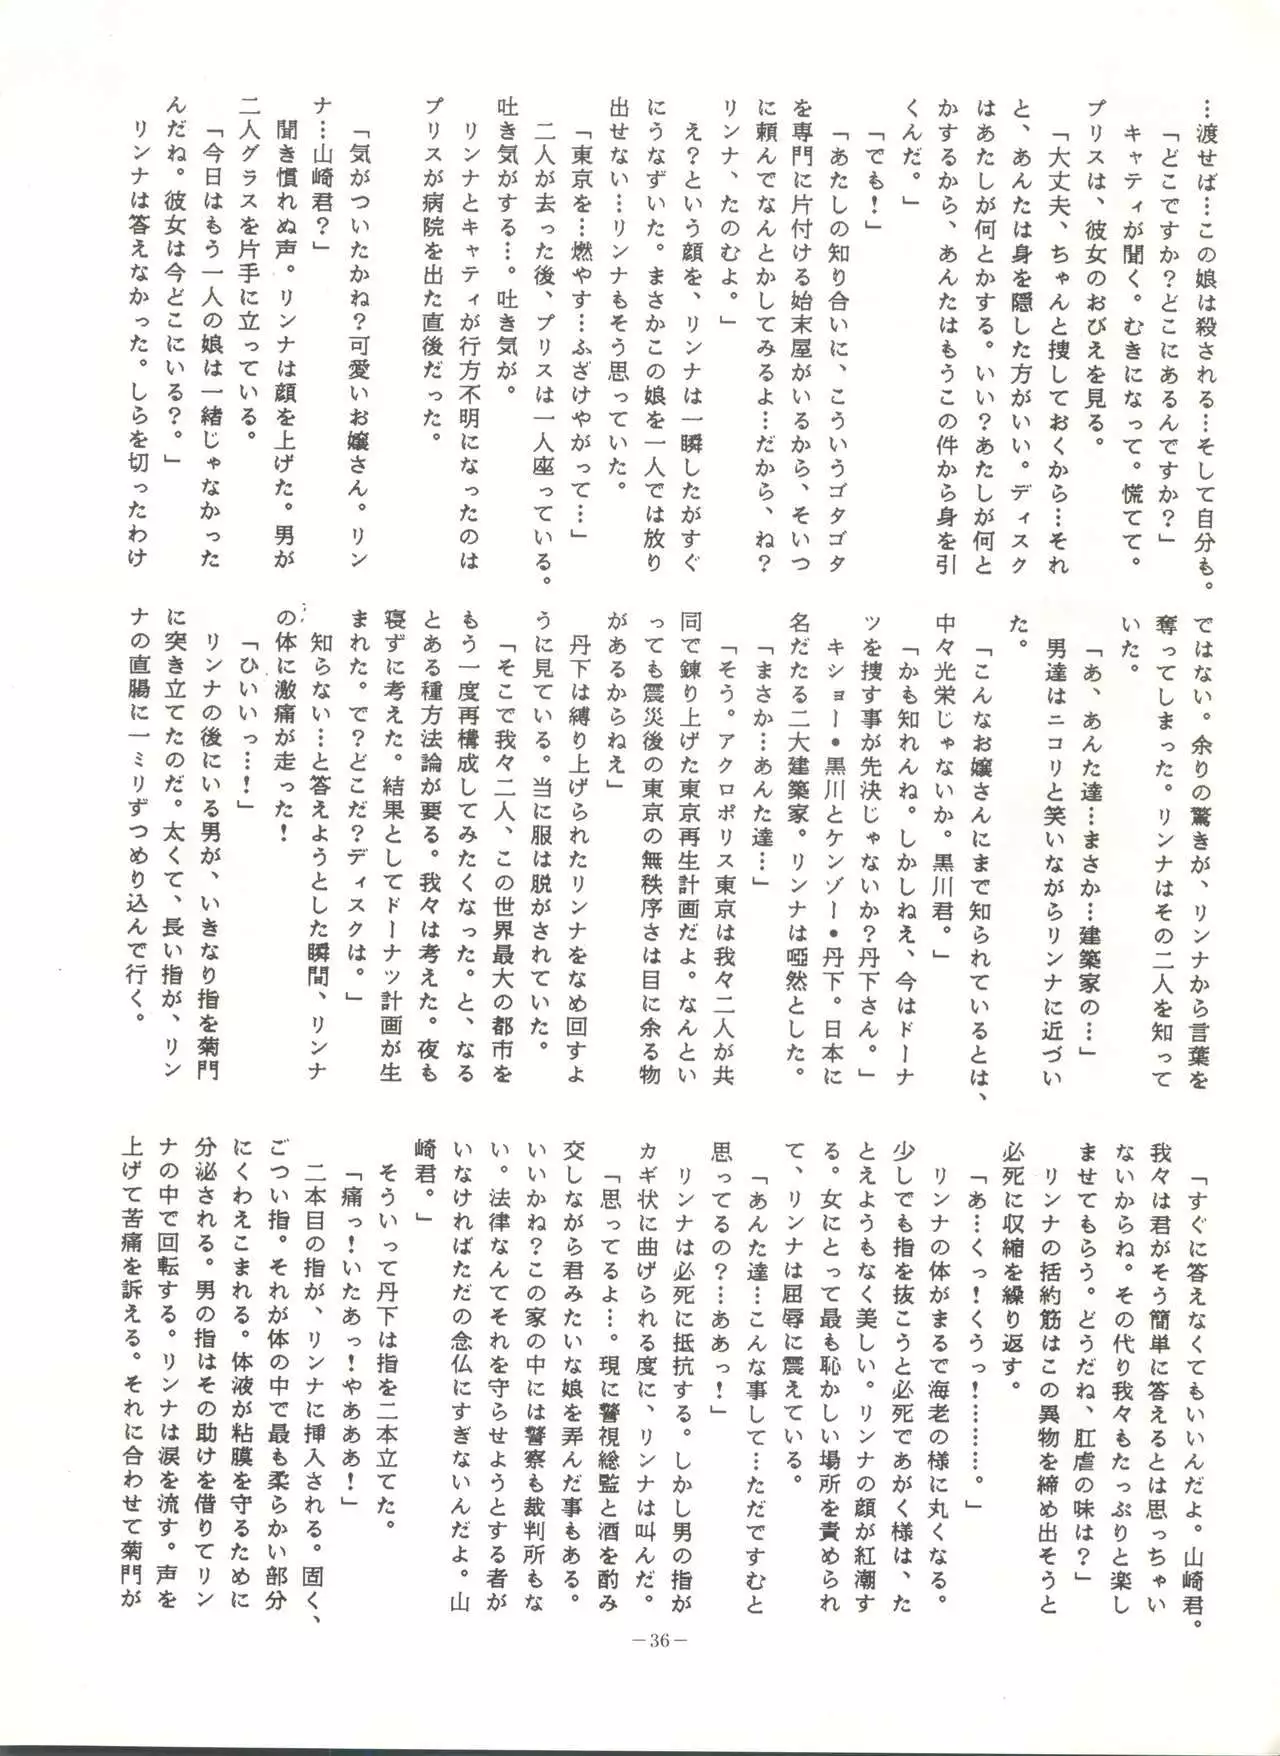 …渡せば…この娘は殺される…そして自分も。
「どこですか？どこにあるんですか？」
キャティが聞く。むきになって。慌てて。
プリスは、彼女のおびえを見る。
「大丈夫、ちゃんと捜しておくから…それ
と、あんたは身を隠した方がいい。ディスク
はあたしが何とかする。いい？あたしが何と
かするから、あんたはもうこの件から身を引
くんだ。」
「でも！」
「あたしの知り合いに、こういうゴタゴタ
を専門に片付ける始末屋がいるから、そいつ
に頼んでなんとかしてみるよ…だから、ね？
リンナ、たのむよ。」
え？という顔を、リンナは一瞬したがすぐ
にうなずいた。まさかこの娘を一人では放り
出せない…リンナもそう思っていた。
「東京を…燃やす…ふざけやがって…」
二人が去った後、プリスは一人座っている。
吐き気がする…。吐き気が。
リンナとキャティが行方不明になったのは
プリスが病院を出た直後だった。
「気がついたかね？可愛いお嬢さん。リン
ナ…山崎君？」
聞き慣れぬ声。リンナは顔を上げた。男が
二人グラスを片手に立っている。
「今日はもう一人の娘は一緒じゃなかった
んだね。彼女は今どこにいる？。」
リンナは答えなかった。しらを切ったわけ
ではない。余りの驚きが、リンナから言葉を
奪ってしまった。リンナはその二人を知って
いた。
「あ、あんた達…まさか…建築家の…」
男達はニコリと笑いながらリンナに近づい
た。
「こんなお嬢さんにまで知られているとは、
中々光栄じゃないか。黒川君。」
「かも知れんね。しかしねえ、今はドーナ
ツを捜す事が先決じゃないか？丹下さん。」
キショー・黒川とケンゾー・丹下。日本に
名だたる二大建築家。リンナは唖然とした。
「まさか…あんた達…」
「そう。アクロポリス東京は我々二人が共
同で錬り上げた東京再生計画だよ。なんとい
っても震災後の東京の無秩序さは目に余る物
があるからねえ」
丹下は縛り上げられたリンナをなめ回すよ
うに見ている。当に服は脱がされていた。
「そこで我々二人、この世界最大の都市を
もう一度再構成してみたくなった。と、なる
とある種方法論が要る。我々は考えた。夜も
寝ずに考えた。結果としてドーナツ計画が生
まれた。で？どこだ？ディスクは。」
知らない…と答えようとした瞬間、リンナ
の体に激痛が走った！
「ひいいっ…！」
リンナの後にいる男が、いきなり指を菊門
に突き立てたのだ。太くて、長い指が、リン
ナの直腸に一ミリずつめり込んで行く。
「すぐに答えなくてもいいんだよ。山崎君。
我々は君がそう簡単に答えるとは思っちゃい
ないからね。その代り我々もたっぷりと楽し
ませてもらう。どうだね、肛虐の味は？」
リンナの括約筋はこの異物を締め出そうと
必死に収縮を繰り返す。
「あ…くっ！くうっ！…………。」
リンナの体がまるで海老の様に丸くなる。
少しでも指を抜こうと必死であがく様は、た
とえようもなく美しい。リンナの顔が紅潮す
る。女にとって最も恥かしい場所を責められ
て、リンナは屈辱に震えている。
「あんた達…こんな事して…ただですむと
思ってるの？…ああっ！」
リンナは必死に抵抗する。しかし男の指が
カギ状に曲げられる度に、リンナは叫んだ。
「思ってるよ…。現に警視総監と酒を酌み
交しながら君みたいな娘を弄んだ事もある。
いいかね？この家の中には警察も裁判所もな
い。法律なんてそれを守らせようとする者が
いなければただの念仏にすぎないんだよ。山
崎君。」
そういって丹下は指を二本立てた。
「痛っ！いたあっ！やあああ！」
二本目の指が、リンナに挿入される。固く、
ごつい指。それが体の中で最も柔らかい部分
にくわえこまれる。体液が粘膜を守るために
分泌される。男の指はその助けを借りてリン
ナの中で回転する。リンナは涙を流す。声を
上げて苦痛を訴える。それに合わせて菊門が
－36－